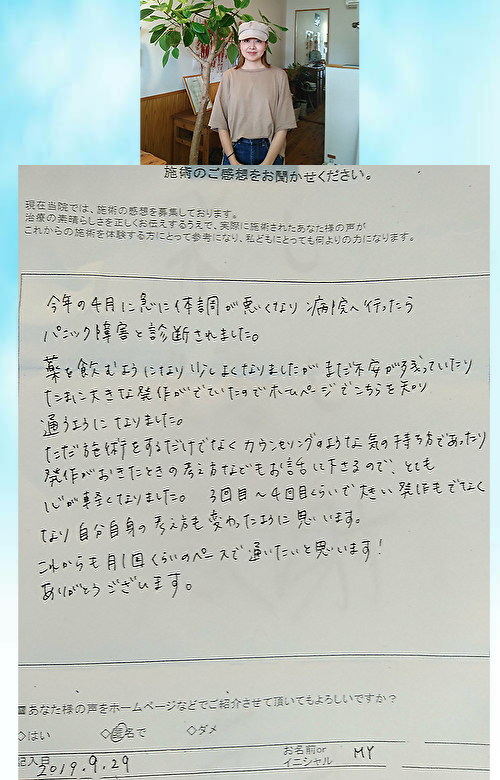 施術のご感想をお聞かせください。
現在当院では、施術の感想を募集しております。
治療の素晴らしさを正しくお伝えするうえで、実際に施術されたあなた様の声が
これからの施術を体験する方にとって参考になり、私どもにとっても何よりの力になります。
今年の4月に急に体調が悪くなり 病院へ行ったら
パニック障害と診断されました。
薬を飲むようになり 少しよくなりましたが まだ不安が残っていたり
たまに大きな発作がでていたのでホームページでこちらを知り
通うようになりました。
ただ施術をするだけでなく カウンセリングのような気の持ち方であったり
発作がおきたときの考え方などもお話し下さるので、とても
心が軽くなりました。 3回目〜4回目くらいで大きい発作もでなく
なり自分自身の考え方も変わったように思います。
これからも月1回くらいのペースで通いたいと思います!
ありがとうございます。
あなた様の声をホームページなどでご紹介させて頂いてもよろしいですか?
◇はい ◇匿名で ◇ダメ
記入日 2019.9.29
お名前or
イニシャル MY